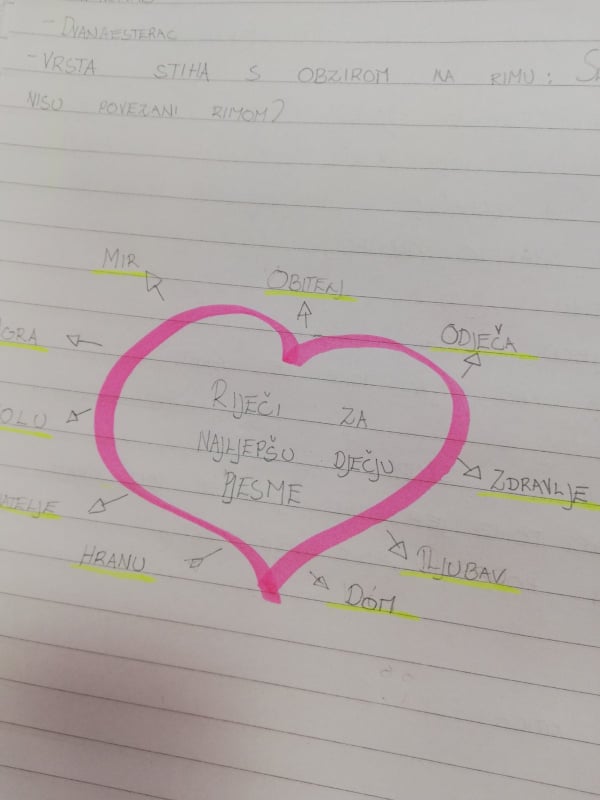 - DVANAESTERAC
- VRSTA STIHA S OBZIROM NA RIMU:
NISU POVEZANI RIMOM)
MIR
OBITENJ
ODJEČA
GRA
RIJEČI ZA
NAJLJEPŠU DJEČJU
PJESME
OLU
ZDRAVLJE
ATELJE
HRANU
LJUBAV
DOM